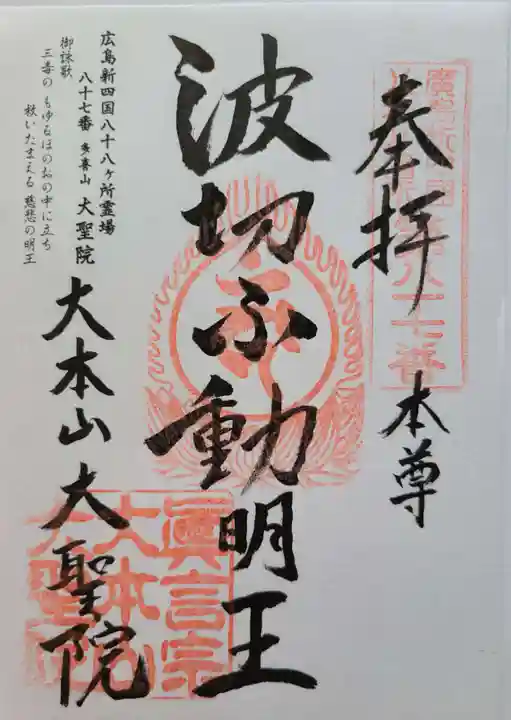 奉拝
本尊
廣島新四国
第八十七番
波切不動明王
大本山大聖院
眞言宗
大本山
大聖院
広島新四国八十八ヶ所霊場
八十七番 多喜山 大聖院
御詠歌
三毒の もゆるほのおの中に立ち
救いたまえる 慈悲の明王